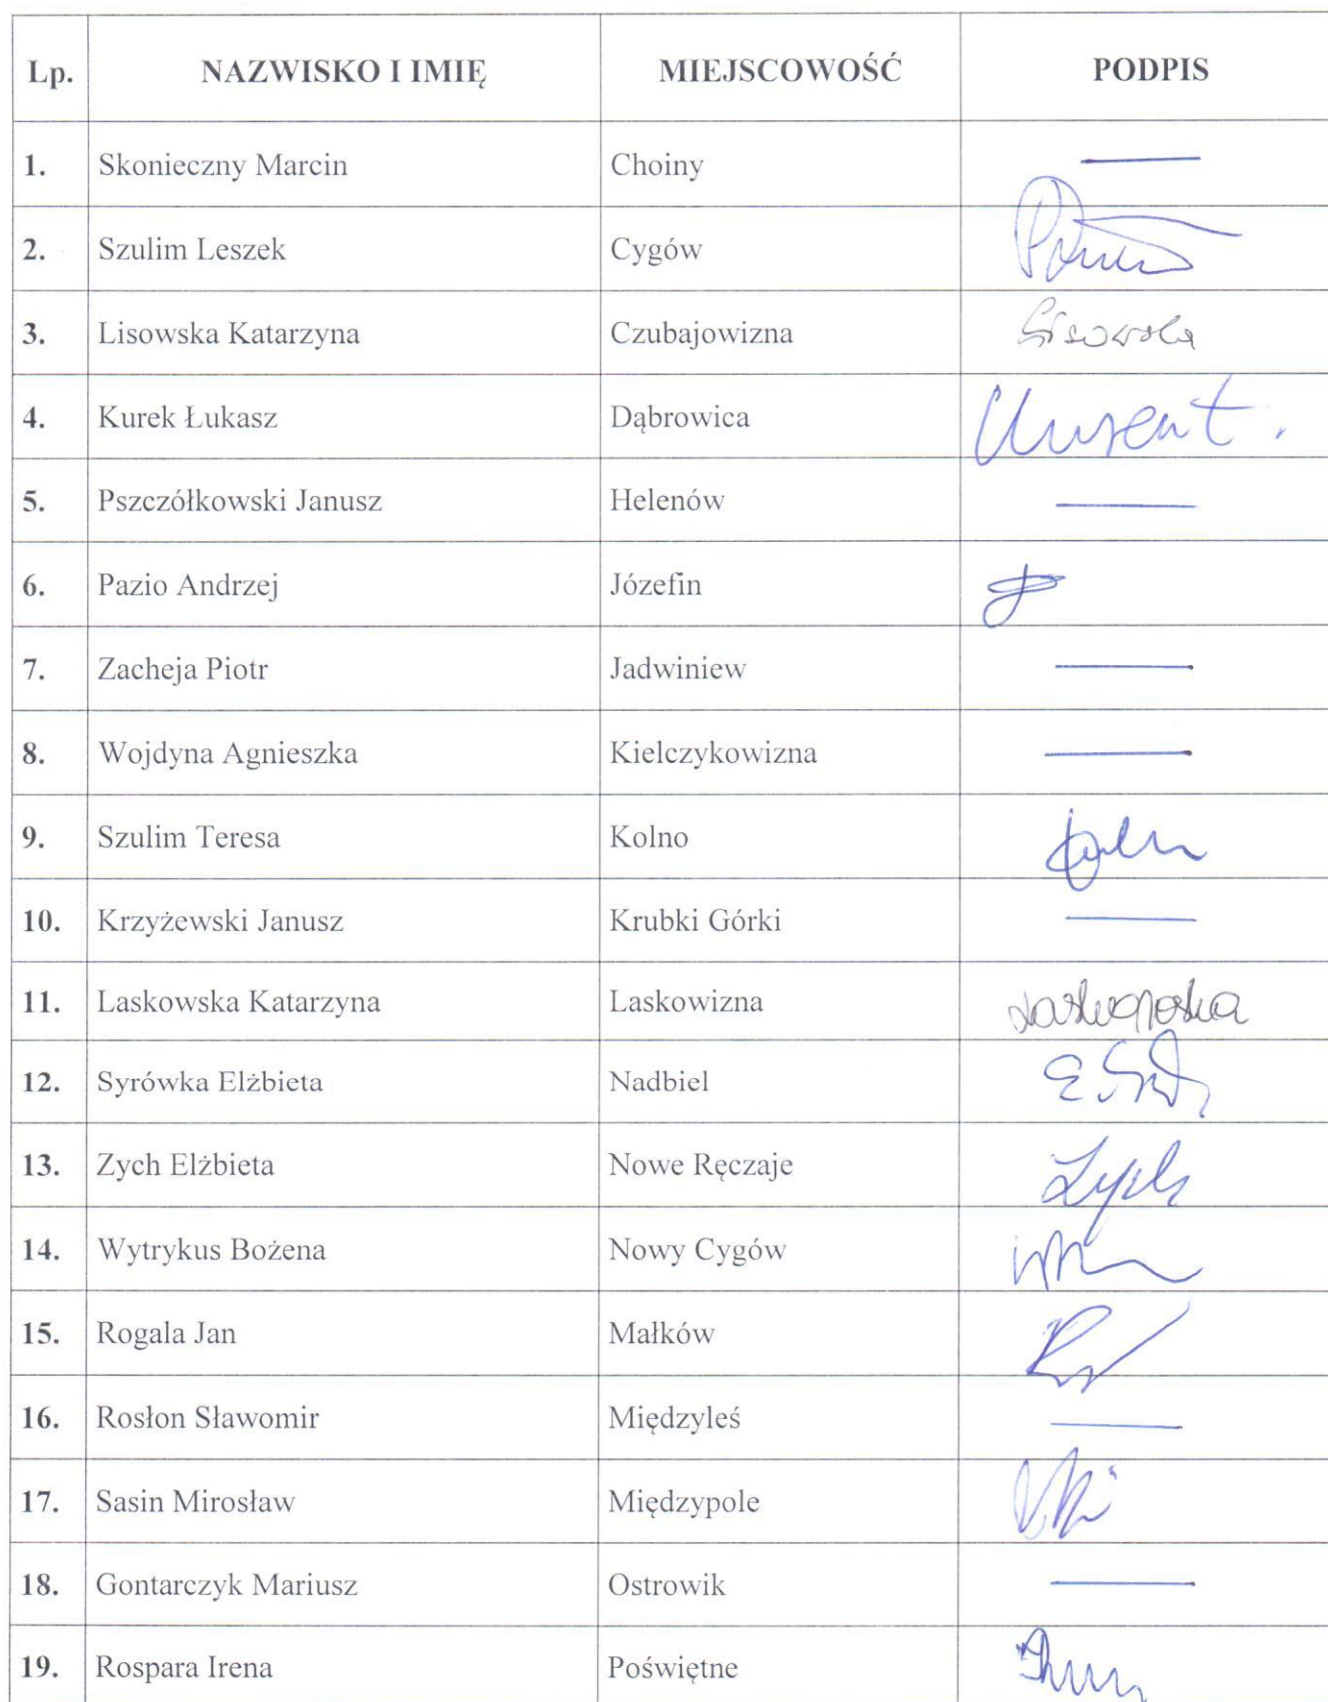 Lp. NAZWISKO I IMIĘ MIEJSCOWOŚĆ PODPIS
1. Skonieczny Marcin Choiny —
2. Szulim Leszek Cygów
3. Lisowska Katarzyna Czubajowizna Lisowska
4. Kurek Łukasz Dąbrowica
5. Pszczółkowski Janusz Helenów —
6. Pazio Andrzej Józefin
7. Zacheja Piotr Jadwiniew —
8. Wojdyna Agnieszka Kielczykowizna —
9. Szulim Teresa Kolno
10. Krzyżewski Janusz Krubki Górki —
11. Laskowska Katarzyna Laskowizna Laskowska
12. Syrówka Elżbieta Nadbiel
13. Zych Elżbieta Nowe Ręczaje Zych
14. Wytrykus Bożena Nowy Cygów
15. Rogala Jan Małków
16. Rosłon Sławomir Międzyleś —
17. Sasin Mirosław Międzypole
18. Gontarczyk Mariusz Ostrowik —
19. Rospara Irena Poświętne